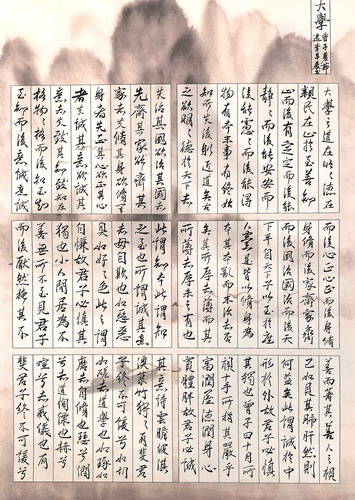 大學
大學之道在明明德在
親民在止於至善知
止而後有定定而後能
靜靜而後能安安而
後能慮慮而後能得
物有本末事有終始
知所先後則近道矣古
之欲明明德於天下者
先治其國欲治其國者
先齊其家欲齊其
家者先修其身欲修其
身者先正其心欲正其心
者先誠其意欲誠其
意者先致其知致知在
格物物格而後知至知
至而後意誠意誠
而後心正心正而後
身脩而後家齊家齊
而後國治國治而後天
下平自天子以至於庶
人壹是皆以脩身為
本其本亂而末治者否
矣其所厚者薄而其
所薄者厚未之有也
此謂知本此謂知
之至也所謂誠其意
者毋自欺也如惡惡
臭如好好色此之謂
自慊故君子必慎其
獨也小人閒居為不
善無所不至見君子
而後厭然揜其不
善而著其善人之視
己如見其肺肝然則
何益矣此謂誠於中
形於外故君子必慎
其獨也曾子曰十目所
視十手所指其嚴乎
富潤屋德潤身心
廣體胖故君子必誠
其意詩雲瞻彼淇
澳菉竹猗猗有斐君
子終不可諼兮如切
如磋者道學也如琢如
磨者自脩也瑟兮僩
兮者恂慄也赫兮
喧兮者威儀也有
斐君子終不可諼兮